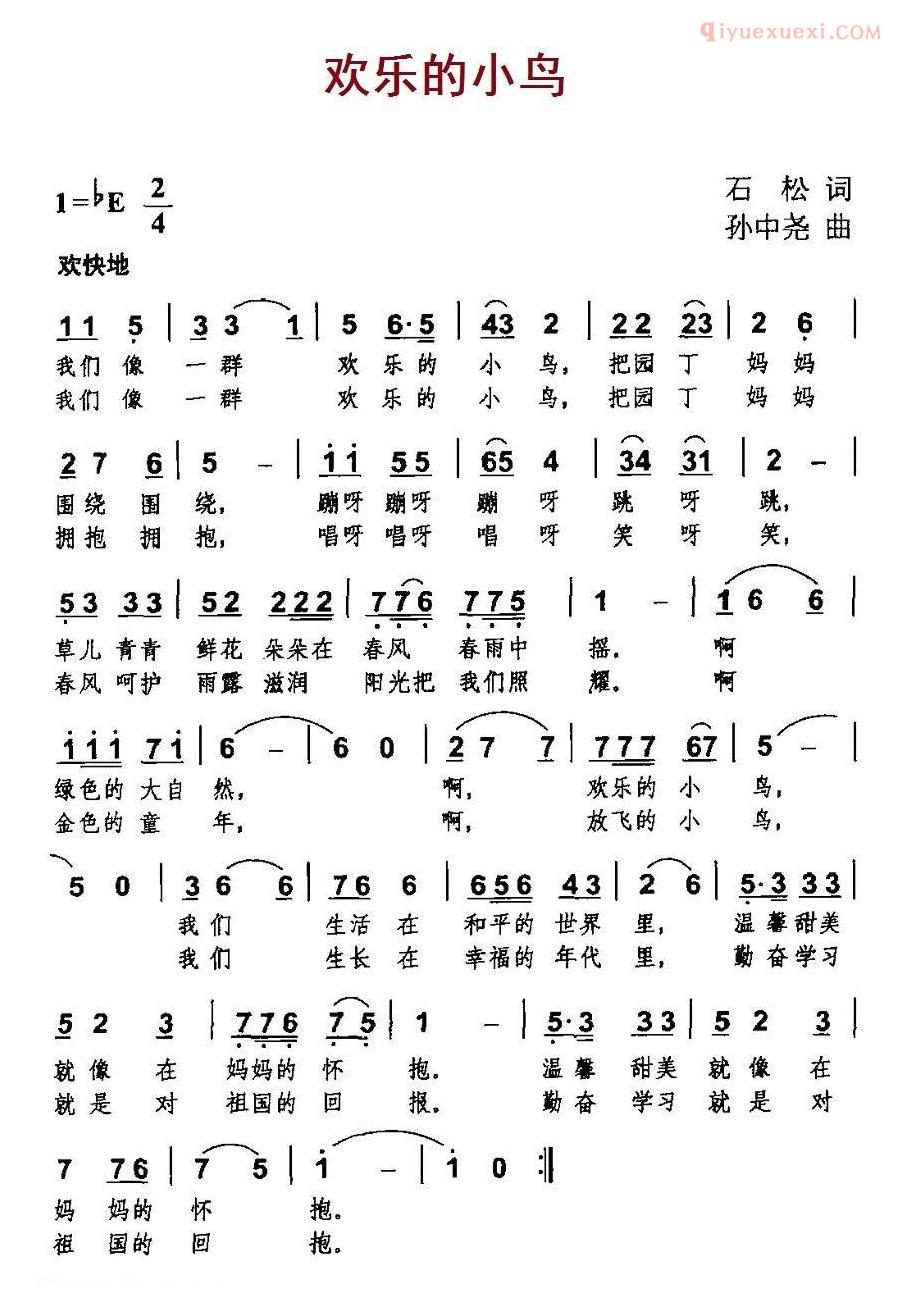 qiyuexuexi.com
欢乐的小鸟
1=♭E 2/4
石 松 词
孙中尧 曲
欢快地
1 1 5 | 3 3 1 | 5 6·5 | 43 2 | 22 23 | 2 6 |
我们 像 一群 欢 乐的 小 鸟, 把园 丁 妈 妈
我们 像 一群 欢 乐的 小 鸟, 把园 丁 妈 妈
2 7 6 | 5 - | 11 55 | 65 4 | 34 31 | 2 - |
围绕 围 绕, 蹦呀 蹦呀 蹦 呀 跳 呀 跳,
拥抱 拥 抱, 唱呀 唱呀 唱 呀 笑 呀 笑,
53 33 | 52 222 | 776 775 | 1 - | 1 6 6 |
草儿 青青 鲜花 朵朵在 春风 春雨中 摇. 啊
春风 呵护 雨露 滋润 阳光把 我们照 耀. 啊
111 71 | 6 - | 6 0 | 2 7 7 | 777 67 | 5 - |
绿色的 大自 然, 啊, 欢乐的 小 鸟,
金色的 童 年, 啊, 放飞的 小 鸟,
5 0 | 3 6 6 | 76 6 | 656 43 | 2 6 | 5·3 33 |
我 们 生活 在 和平的 世界 里, 温馨甜美
我 们 生长 在 幸福的 年代 里, 勤奋学习
5 2 3 | 776 75 | 1 - | 5·3 33 | 5 2 3 |
就像 在 妈妈的 怀 抱。 温馨 甜美 就像 在
就是 对 祖国的 回 报。 勤奋 学习 就是 对
7 76 | 7 5 | 1 - | 1 0 :|
妈 妈的 怀 抱。
祖 国的 回 抱。